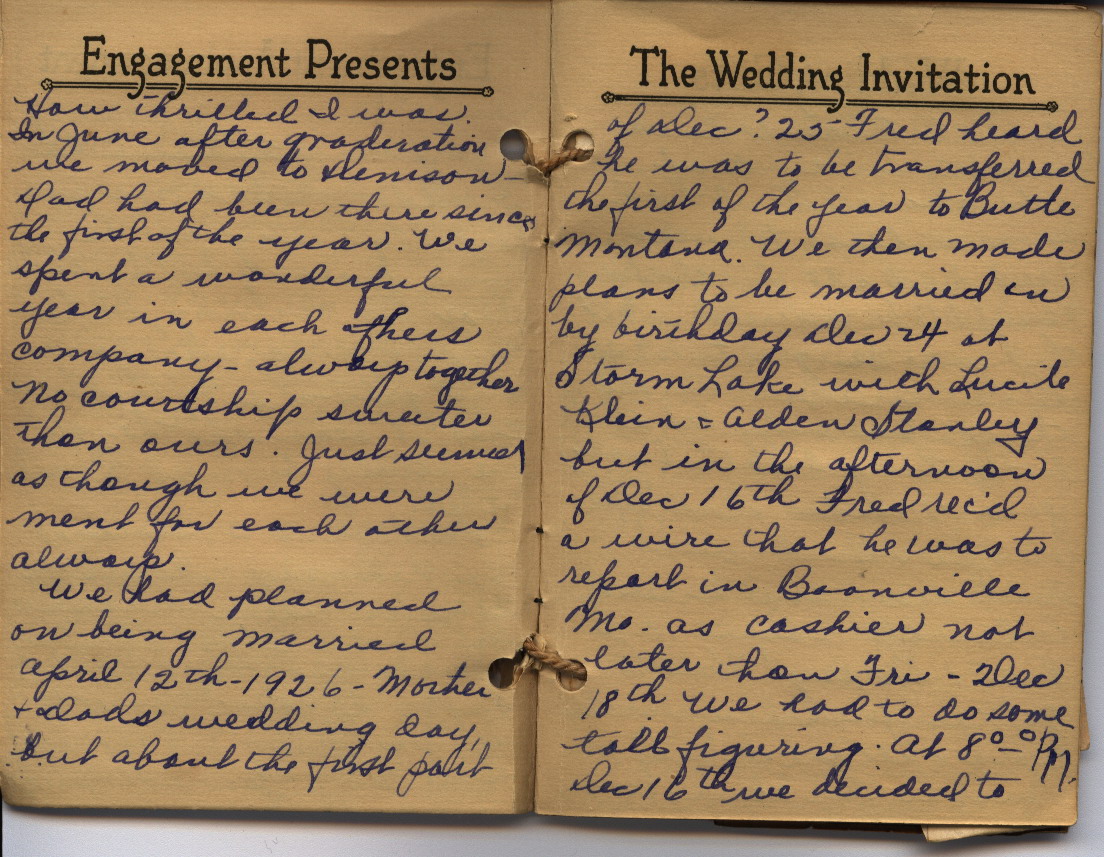 Engagement Presents
How thrilled I was.
In June after graderation
we moved to Denison -
Dad had been there since
the first of the year. We
spent a wonderful
year in each others
company - always together
No courtship sweeter
than ours. Just seemed
as though we were
ment for each other
always.
We had planned
on being married
April 12th - 1926 - Mother
+ Dads wedding day,
but about the first part
The Wedding Invitation
of Dec ? 25 - Fred heard
he was to be transferred
the first of the year to Butte
Montana. We then made
plans to be married on
by birthday Dec 24 at
Storm Lake with Lucile
Klein = Alden Stanley
but in the afternoon
of Dec 16th Fred rec'd
a wire that he was to
report in Boonville
Mo. as cashier not
later than Fri - Dec
18th We had to do some
tall figuring. At 8 00 P.M.
Dec 16th we decided to